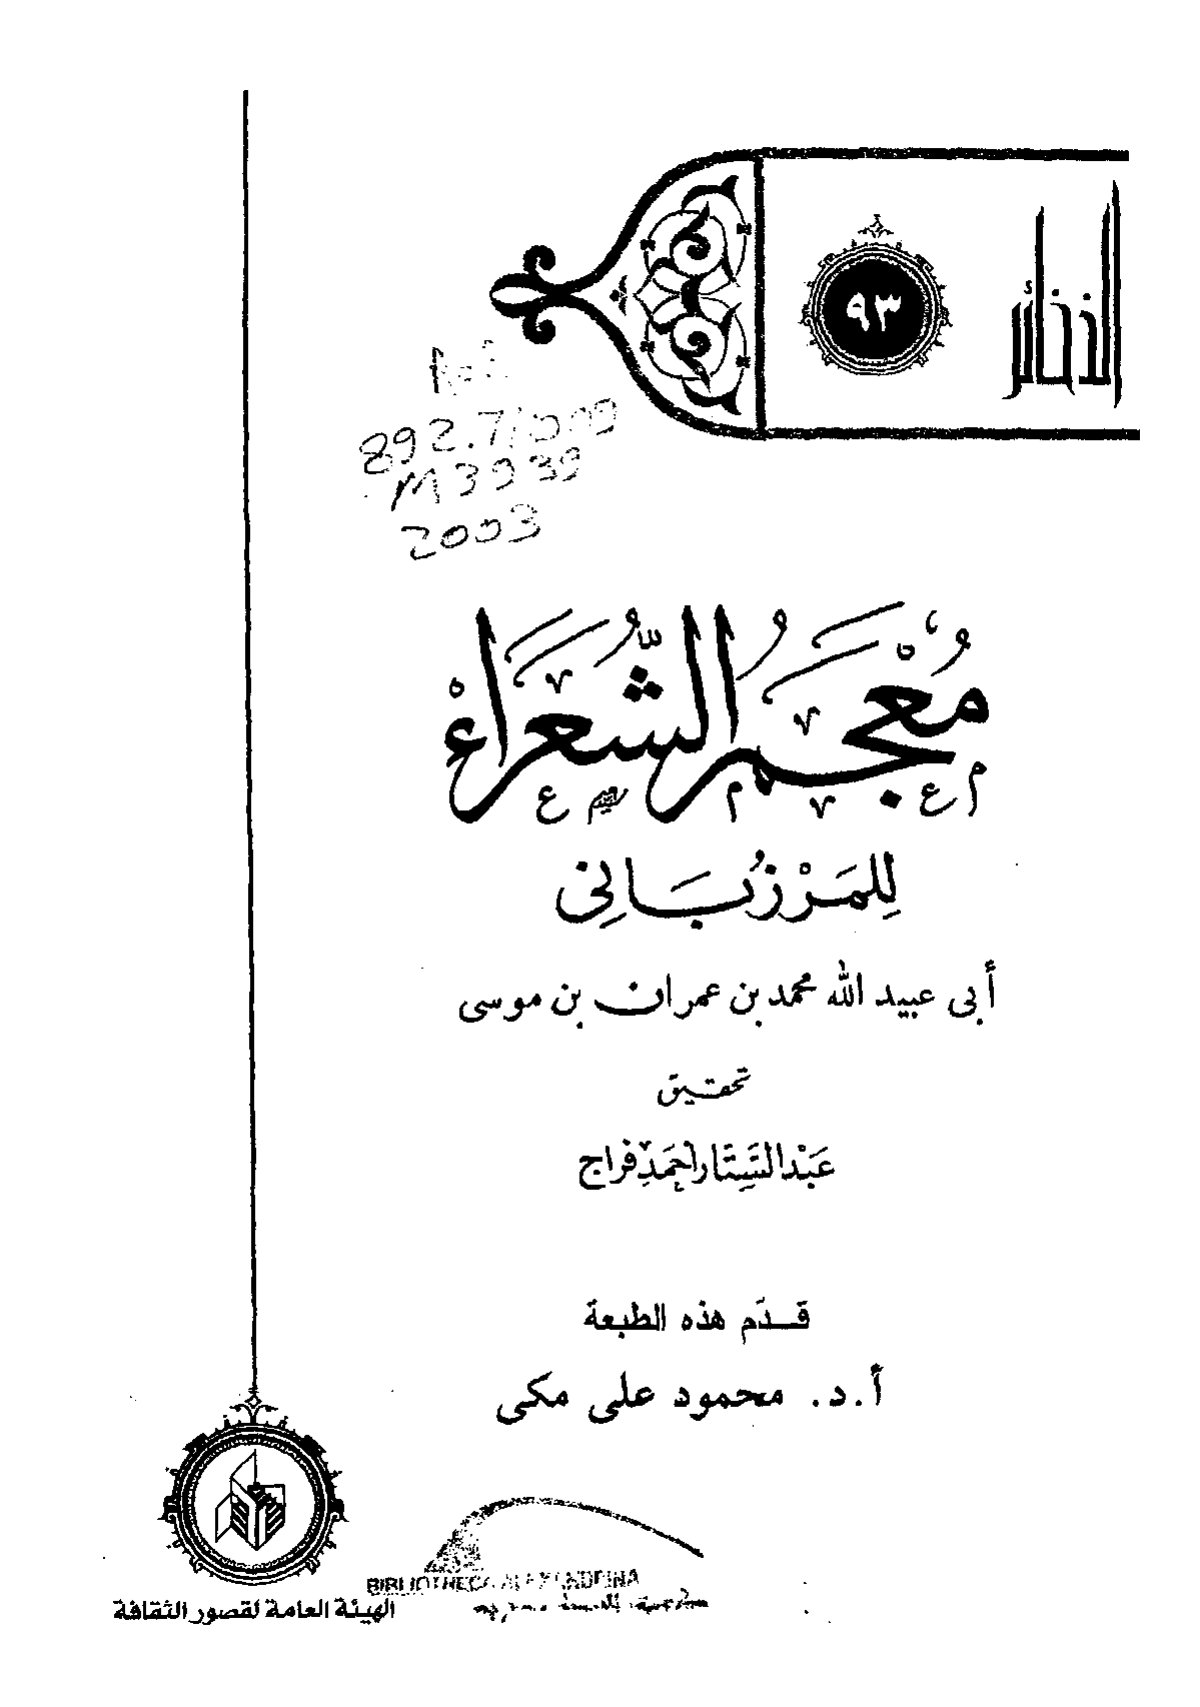 الذخائر
٩٣
892.7/009
M3939
2003
مُعْجَمُ الشُّعَرَاءْ
لِلمَرْزُبَانِى
أبى عبيد الله محمد بن عمران بن موسى
تحقيق
عَبْدالسَّتَّار أحمَد فراج
قدّم هذه الطبعة
أ.د. محمود على مكى
BIBLIOTHECA ALEXANDRINA
الهيئة العامة لقصور الثقافة